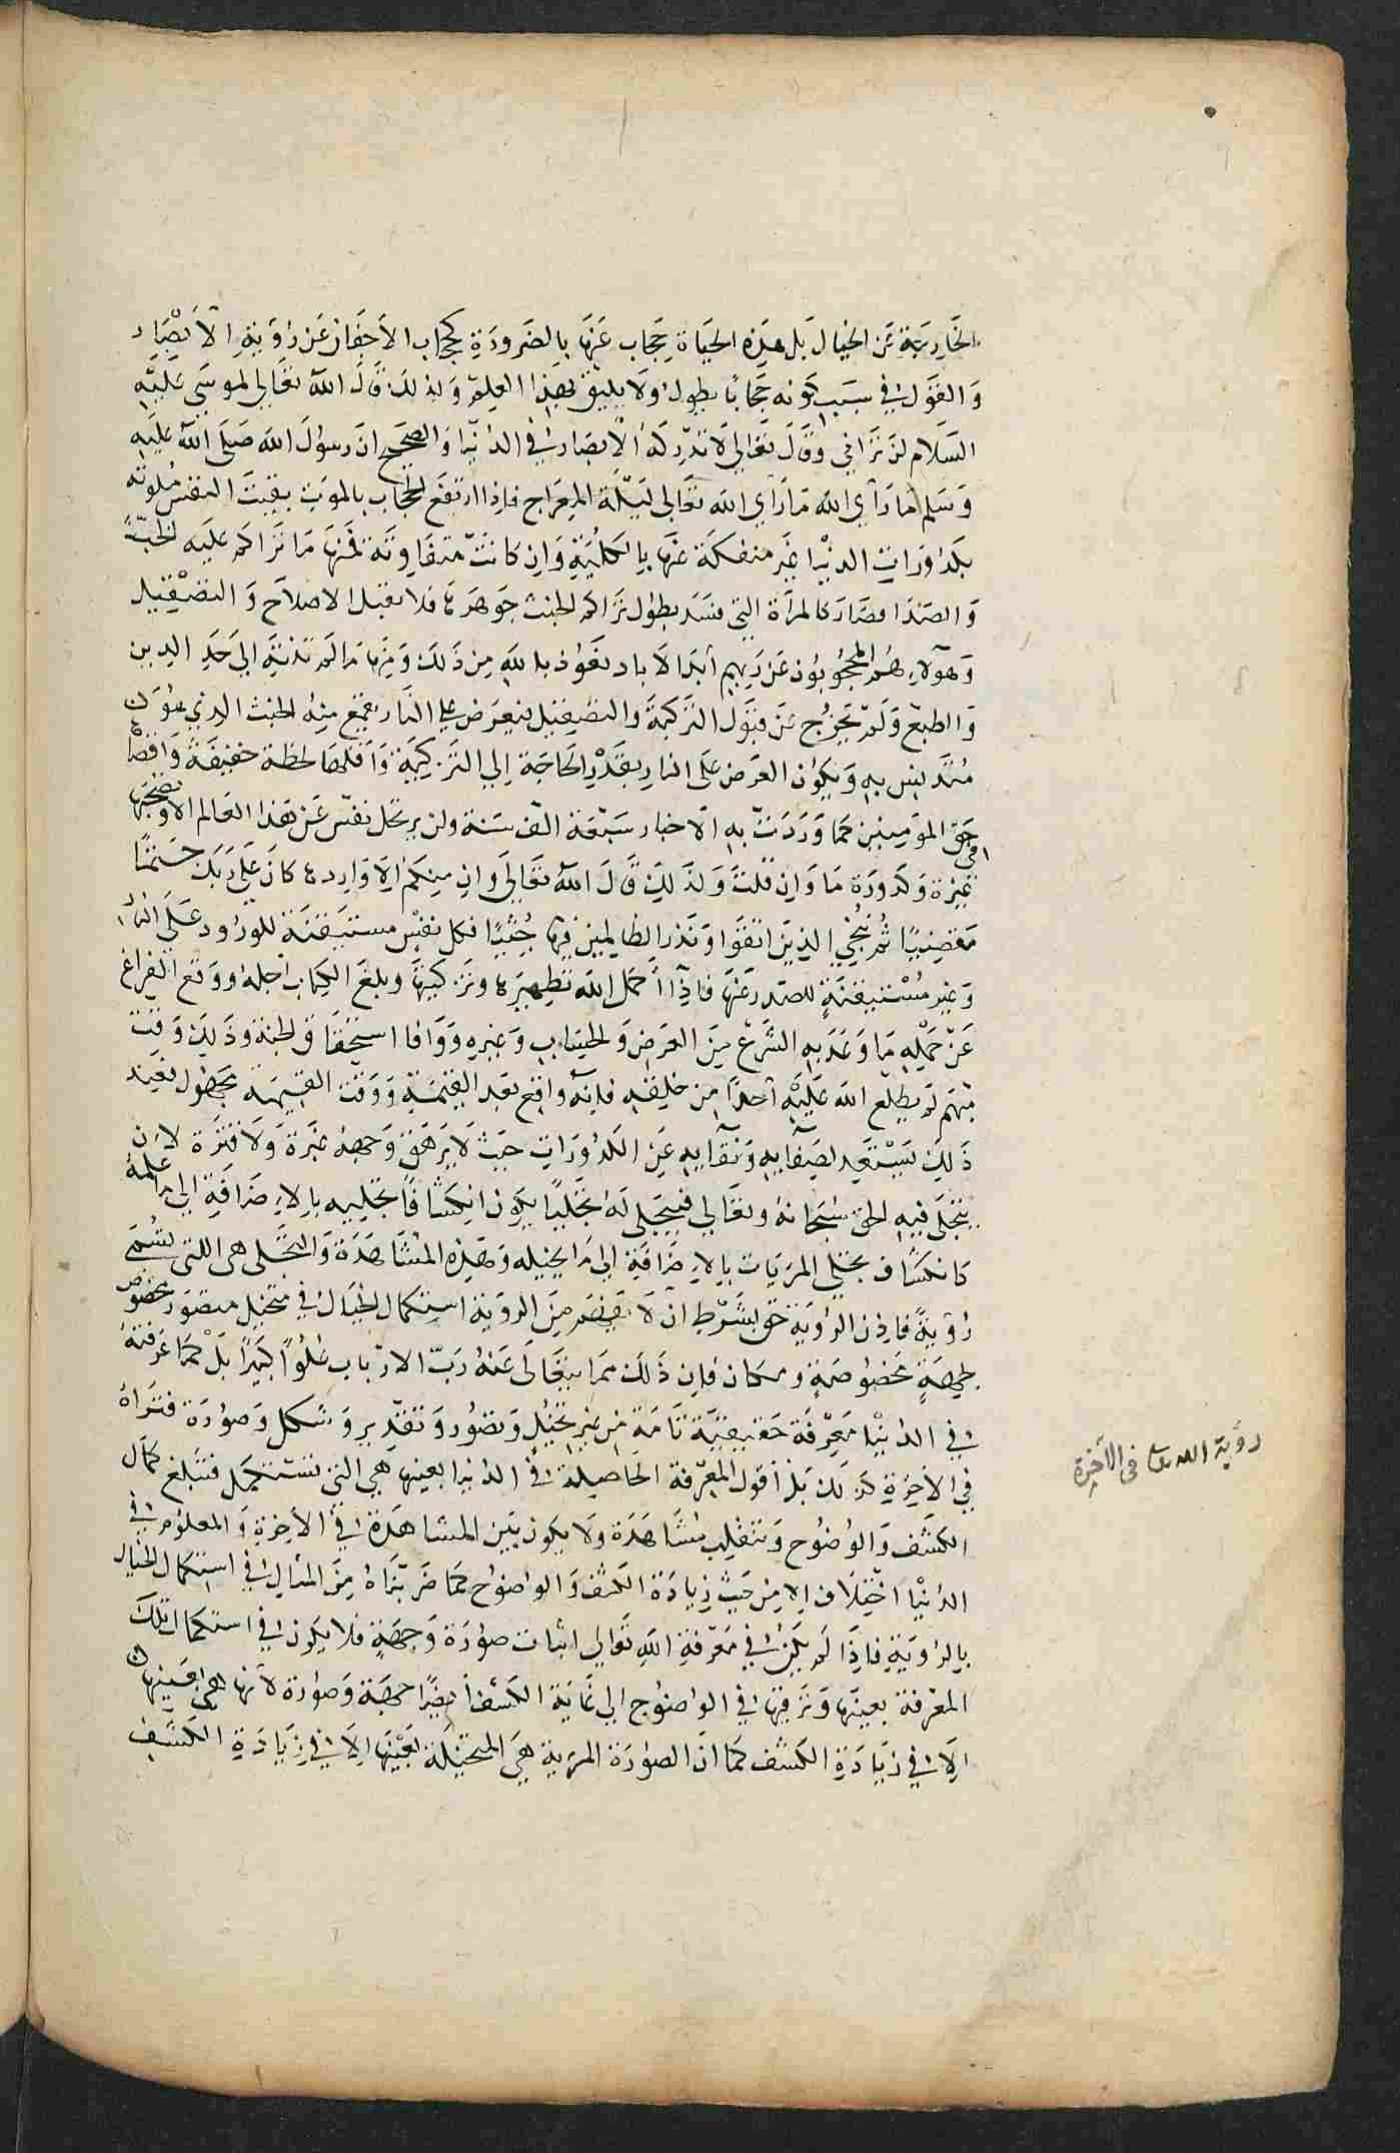 الخارجة عن الخيال بل هذه الحياة حجاب عنها بالضرورة كحجاب الاجفان عن رؤية الابصار
والقول في سبب كونه حجابا يطول ولا يليق بهذا العلم ولذلك قال الله تعالى لموسى عليه
السلام لن تراني وقال تعالى لا تدركه الابصار اي في الدنيا والصحيح ان رسول الله صلى الله عليه
وسلم ما راى الله ما راي الله تعالى ليلة المعراج فاذا ارتفع الحجاب بالموت بقيت النفس ملوثة
بكدورات الدنيا غير منفكة عنها بالكلية وان كانت متفاوتة فمنها ما تراكم عليه الخبث
والصدا فصار كالمرآة التي فسد بطول تراكم الخبث جوهرها فلا تقبل الاصلاح والتصقيل
وهولاء هم المحجوبون عن ربهم ابد الاباد نعوذ بالله من ذلك ومنها ما لم تنته الى حد الرين
والطبع ولم يخرج عن قبول التزكية والتصقيل فيعرض على النار يقمع منه الخبث الذي هو
متدنس به ويكون العرض على النار بقدر الحاجة الي التزكية واقلها لحظة خفيفة واقصاها
في حق المومنين كما وردت به الاخبار سبعة الف سنة ولن يرتحل نفس عن هذا العالم الا ويصحبها
غبرة وكدورة ما وان قلت ولذلك قال الله تعالى وان منكم الا واردها كان على ربك حتما
مقضيا ثم ننجي الذين اتقوا ونذر الظالمين فيها جثيا فكل نفس مستيقنة للورود على النار
وغير مستيقنة للصدر عنها فاذا اكمل الله تطهيرها وتزكيتها وبلغ الكتاب اجله ووقع الفراغ
عن جملة ما وعد به الشرع من العرض والحساب وغيره ووافا استحقاق الجنة وذلك وقت
مبهم لم يطلع الله عليه احدا من خلقه فانه واقع بعد القيمة ووقت القيمة مجهول فعند
ذلك يستعد لصفائه ونقائه عن الكدورات حيث لا يرهق وجهه غبرة ولا فترة لان
يتجلى فيه الحق سبحانه وتعالى فيتجلى له تجليا يكون انكشاف تجليه بالاضافة الى ما علمه
كانكشاف تجلي المريات بالاضافة الى ما يخيله وهذه المشاهدة والتجلي هي اللتي تسمى
رؤية فاذن الرؤية حق بشرط ان لا يفهم من الروية استكمال الخيال في متخيل متصور مخصوص
بجهة مخصوصة ومكان فان ذلك مما يتعالى عنه رب الارباب علوا كبيرا بل كما عرفته
في الدنيا معرفة حقيقية تامة من غير تخيل وتصور وتقدير وشكل وصورة فتراه
في الاخرة كذلك بل اقول المعرفة الحاصلة في الدنيا بعينها هي التي تستكمل فتبلغ كمال
الكشف والوضوح وتنقلب مشاهدة ولا يكون بين المشاهدة في الاخرة والمعلوم في
الدنيا اختلاف الا من حيث زيادة الكشف والوضوح كما ضربناه من المثال في استكمال الخيال
بالروية فاذا لم يكن في معرفة الله تعالى اثبات صورة وجهة فلا يكون في استكمال تلك
المعرفة بعينها وترقيها في الوضوح الى غاية الكشف ايضا جهة وصورة لانها هي بعينها
الا في زيادة الكشف كما ان الصورة المرية هي المتخيلة بعينها الا في زيادة الكشف
رؤية الله تعالى في الآخرة